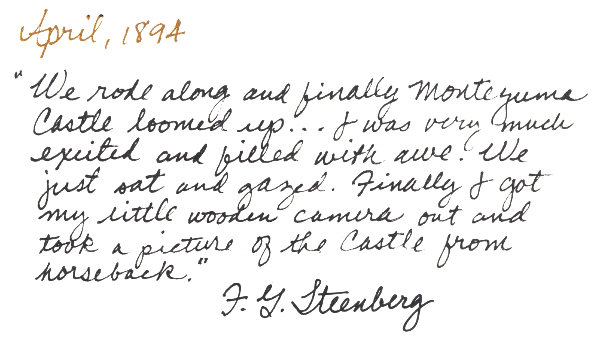 April, 1894
"We rode along and finally Montezuma
Castle loomed up... I was very much
excited and filled with awe. We
just sat and gazed. Finally I got
my little wooden camera out and
took a picture of the Castle from
horseback."
F. G. Steenberg